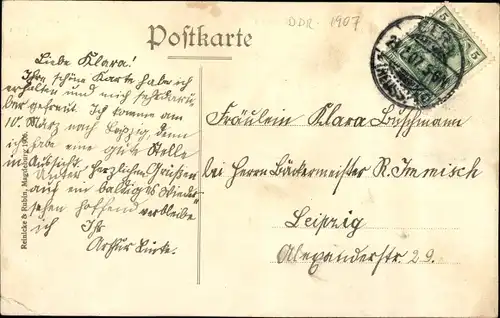 DDR. 1907
Postkarte
5 5
Liebe Klara!
Ihre schöne Karte habe ich
erhalten und mich sehr darü-
ber gefreut. Ich komme am
10. März nach Leipzig, denn
ich habe eine gute Stelle
in Aussicht.
Unter herzlichen Grüßen
auf ein baldiges Wieder-
sehen hoffend verbleibe
ich Ihr
Arthur
Fräulein Klara Buschmann
bei Herrn Bäckermeister R. Immisch
Leipzig
Alexanderstr. 29.
Reinicke & Rubin, Magdeburg 1906.